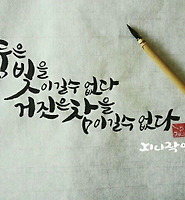 둠은
빛을 이길 수 없다
거짓은 참을 이길 수 없다